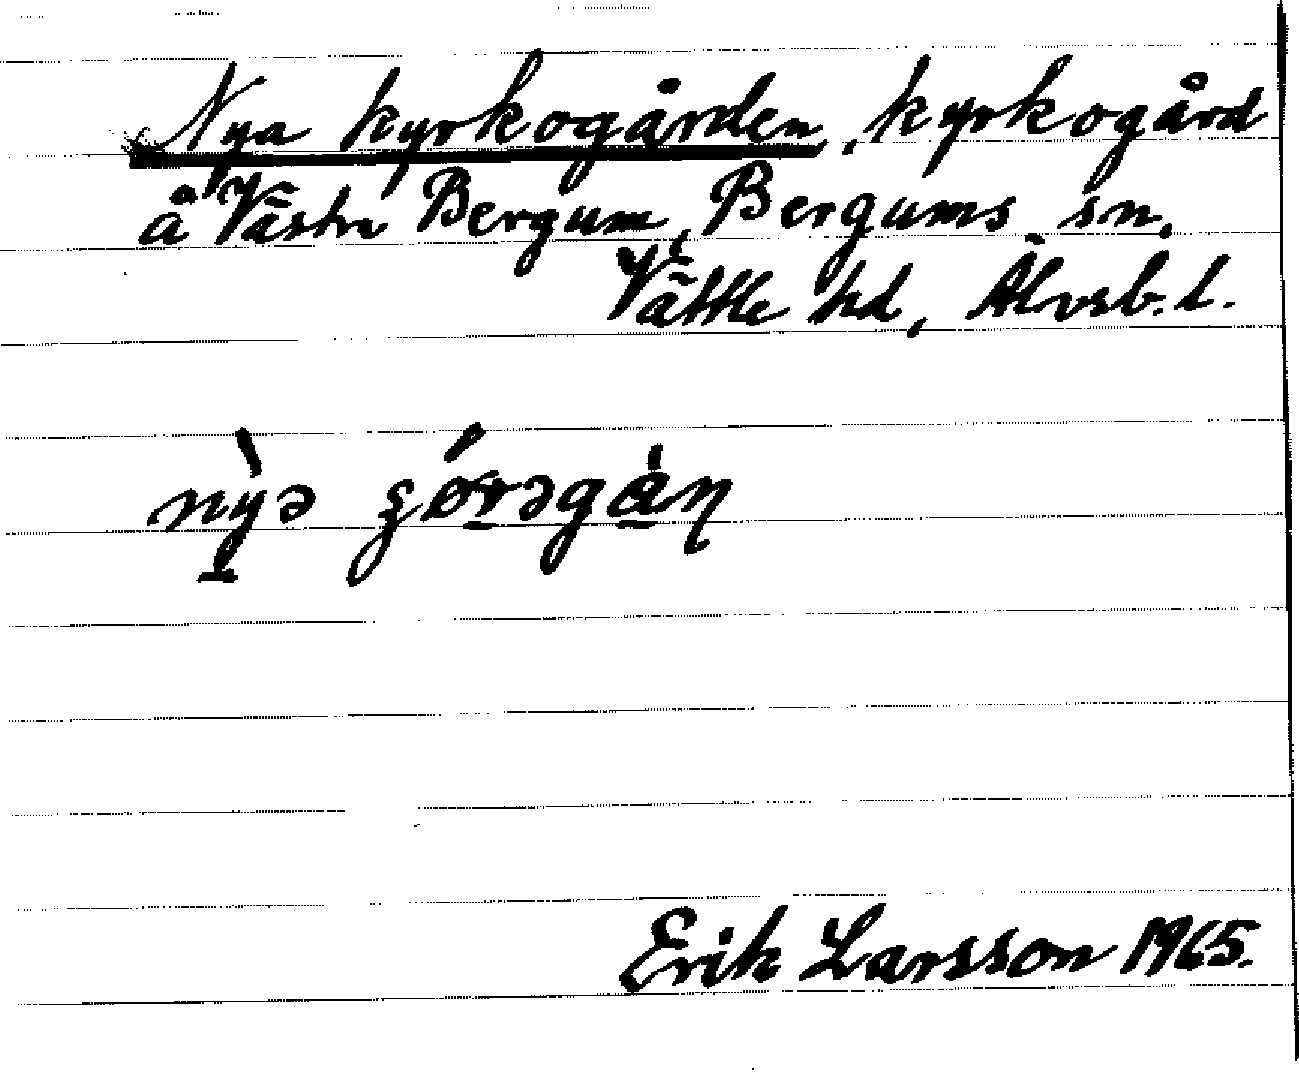 Nya kyrkogården, kyrkogård
å Västra Bergum, Bergums sn.
Vättle hd, Älvsb. l.
nỳə ʒórəgàn̥
Erik Larsson 1965.